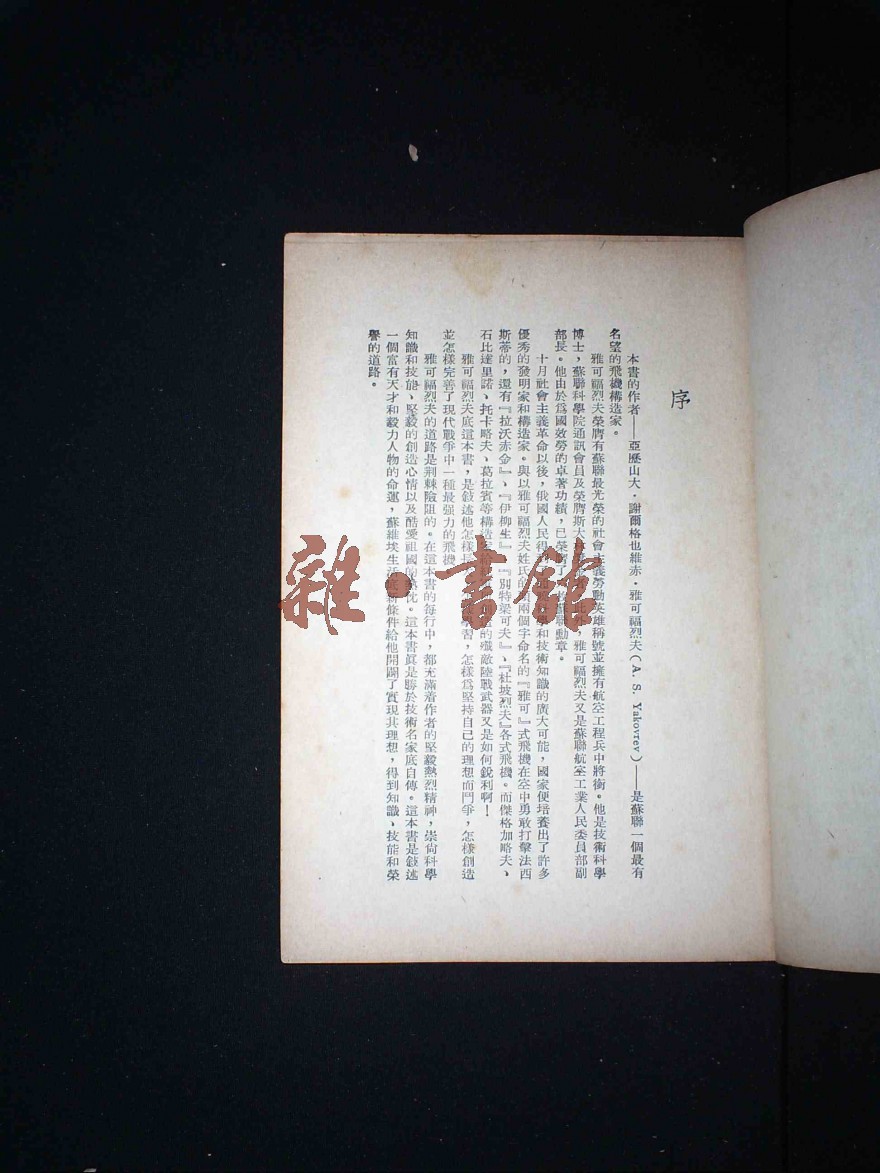 序
本書的作者——亞歷山大·謝爾格也維赤·雅可福烈夫(A. S. Yakovrev)——是蘇聯一個最有
名望的飛機構造家。
雅可福烈夫榮膺有蘇聯最光榮的社會主義勞動英雄稱號並擁有航空工程兵中將銜。他是技術科學
博士,蘇聯科學院通訊會員及榮膺斯大林 雅可福烈夫又是蘇聯航空工業人民委員部副
部長。他由於爲國效勞的卓著功績,已榮膺了 蘇聯勳章。
十月社會主義革命以後,俄國人民得 學和技術知識的廣大可能,國家便培養出了許多
優秀的發明家和構造家。與以雅可福烈夫姓氏的 兩個字命名的『雅可』式飛機在空中勇敢打擊法西
斯蒂的,還有『拉沃赤金』、『伊柳生』、『別特梁可夫』、『杜坡烈夫』各式飛機。而傑格加略夫、
石比達里諾、托卡略夫、葛拉賓等構造 的殲敵陸戰武器又是如何銳利啊!
雅可福烈夫底這本書,是敍述他怎樣長 學習,怎樣爲堅持自己的理想而鬥爭,怎樣創造
並怎樣完善了現代戰爭中一種最强力的飛機
雅可福烈夫的道路是荆棘險阻的。在這本書的每行中,都充滿着作者的堅毅熱烈精神,崇尙科學
知識和技能、堅毅的創造心情以及酷愛祖國的 忱。這本書眞是勝於技術名家底自傳。這本書是敍述
一個富有天才和毅力人物的命運,蘇維埃生活底新條件給他開闢了實現其理想,得到知識、技能和榮
譽的道路。
雜·書館